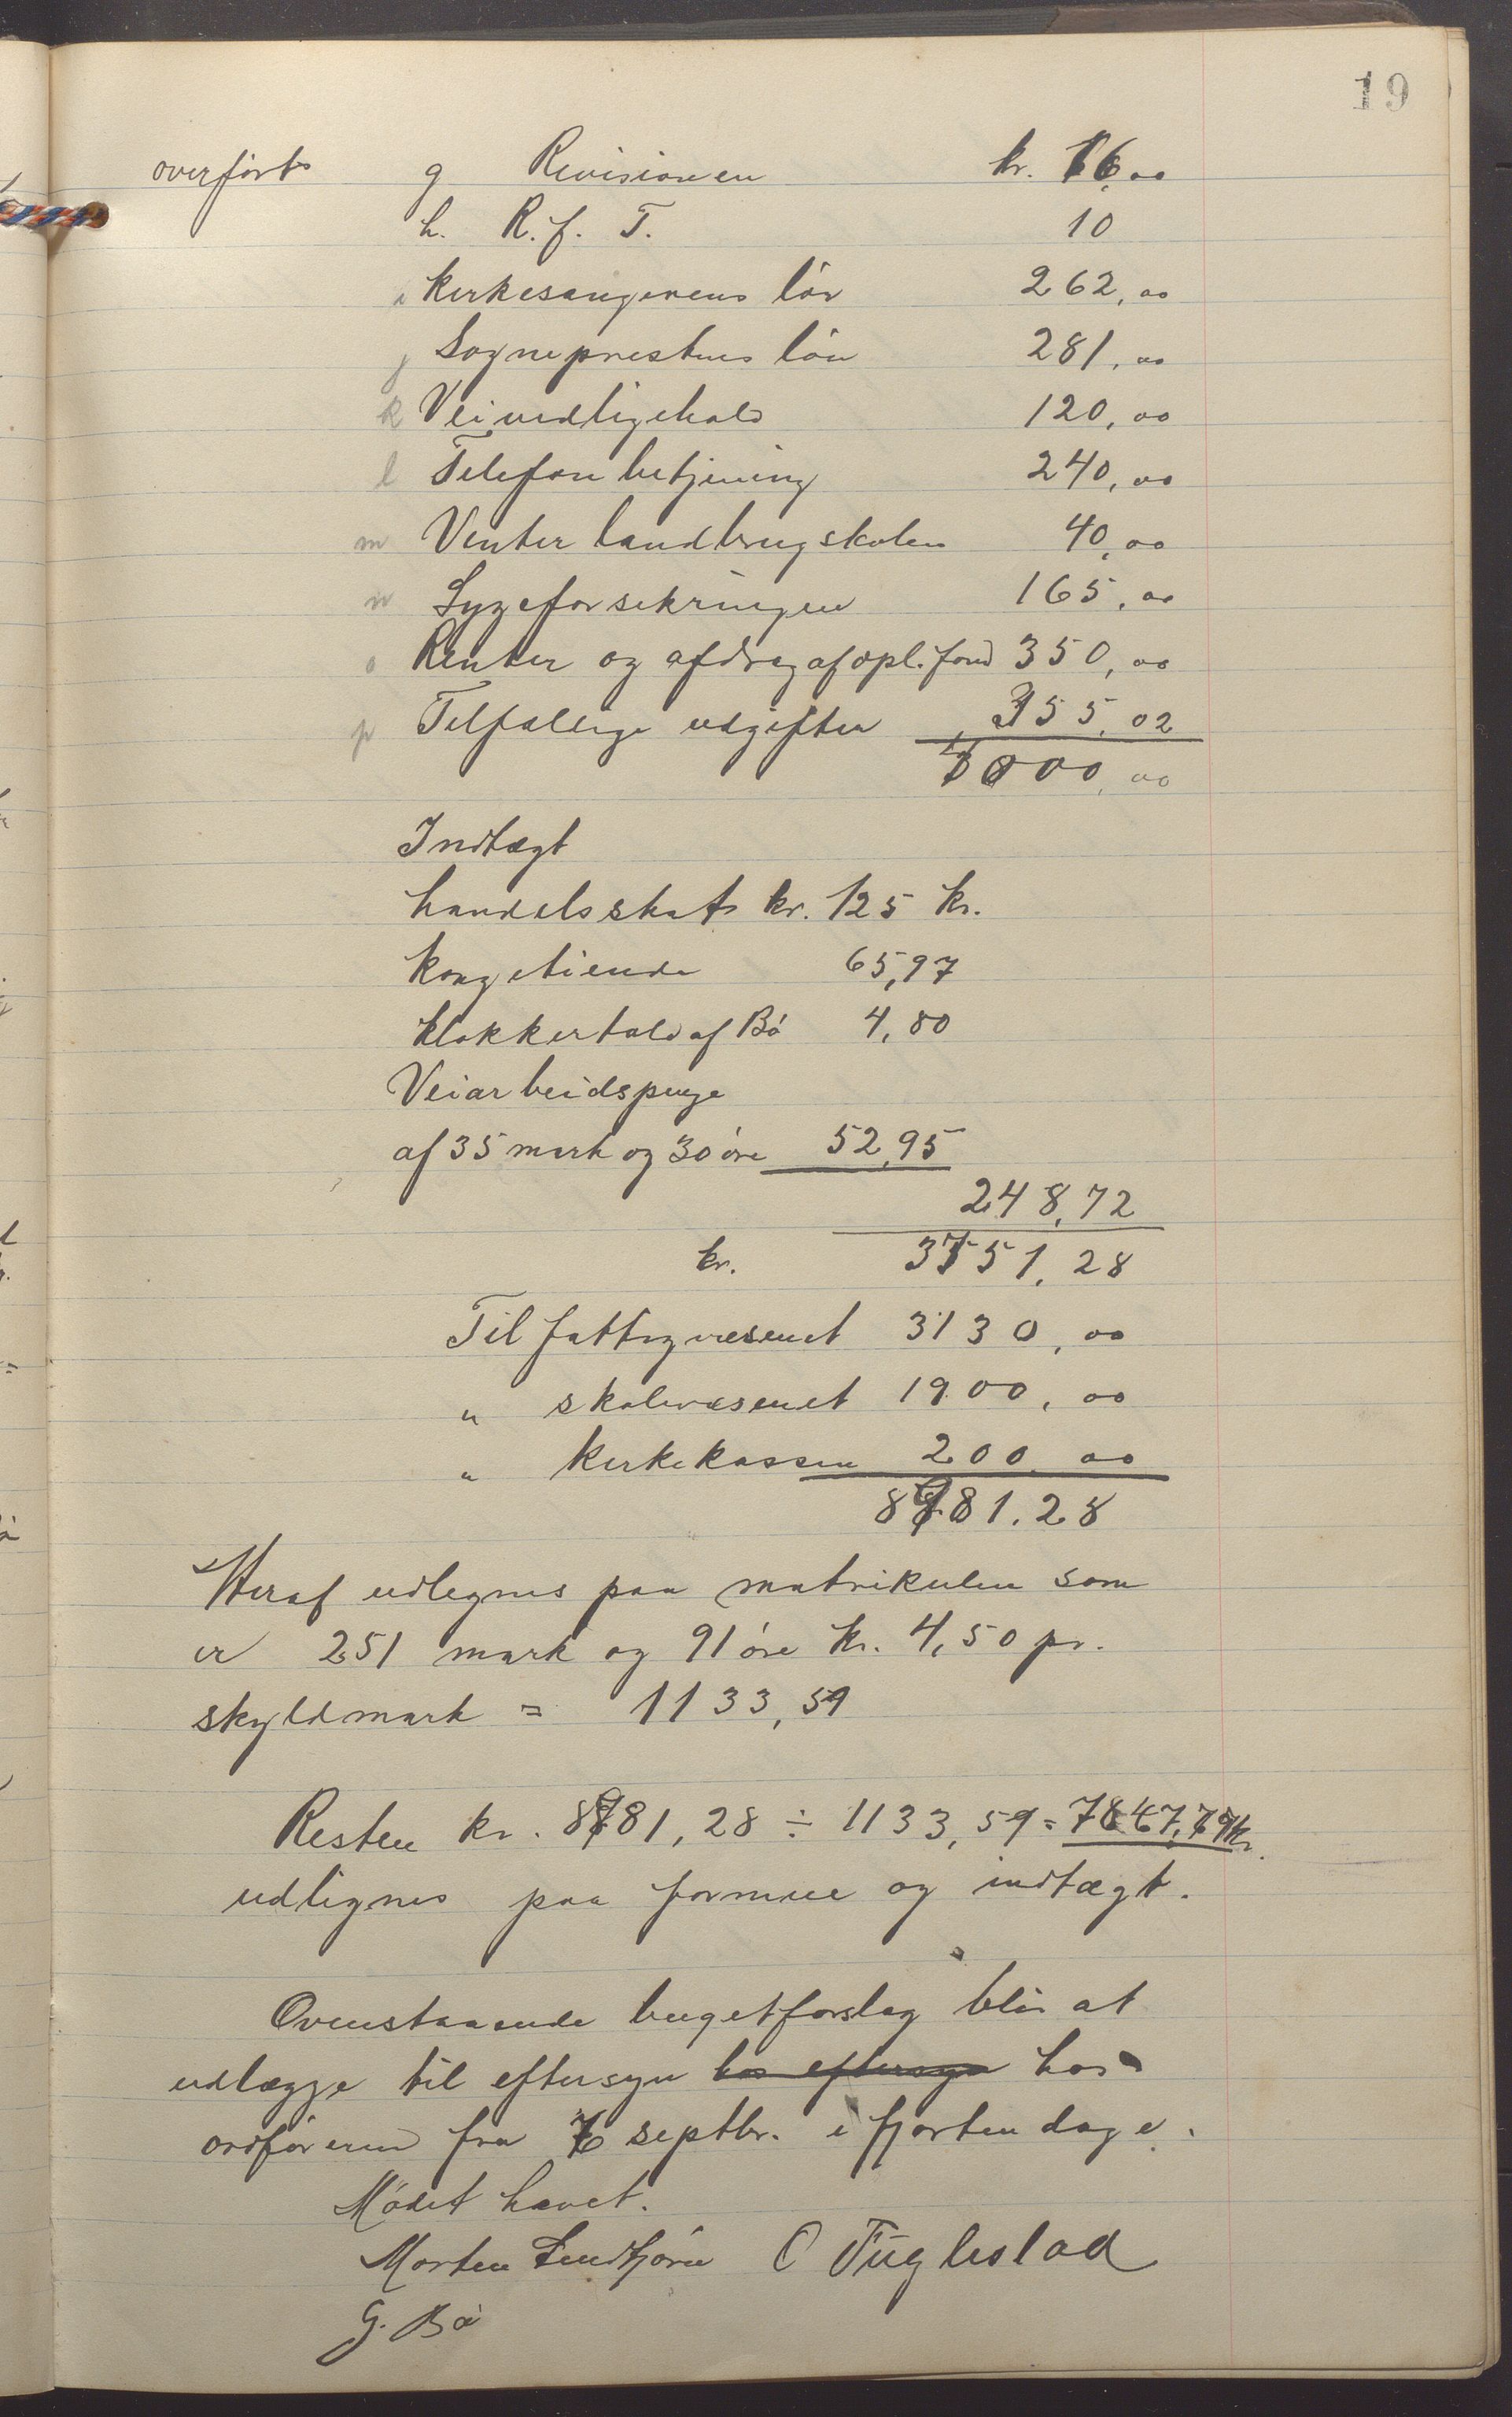 19
overført g Revisionen kr. 16,00
h. R. f. T. 10
i Kirkesangerens løn 262,00
j Sogneprestens løn 281,00
k Veivedligehold 120,00
l Telefonbetjening 240,00
m Vinterlandbrugskolen 40,00
n Sygeforsikringen 165,00
o Renter og afdrag af opl.fond 350,00
p Tilfældige udgifter 355,02
4000,00
Indtægt
handelsskat kr. 125 kr.
Kongetiende 65,97
Klokkertold af Bø 4,80
Veiarbeidspenge
af 35 mark og 30 øre 52,95
248,72
kr. 3751,28
Til fattigvæsenet 3130,00
" skolevæsenet 1900,00
" Kirkekassen 200,00
8981.28
Heraf udlignes paa matrikulen som
er 251 mark og 91 øre kr. 4,50 pr.
skyldmark = 1133,59
Resten kr. 8981,28 ÷ 1133,59 = 7847,69 kr.
udlignes paa formue og indtægt.
Ovenstaaende bugetforslag blir at
udlægge til eftersyn hos eftersyn hos
ordføreren fra 6 septbr. i fjorten dage.
Mødet hævet.
Morten Lindtjørn O Fuglestad
G. Bø